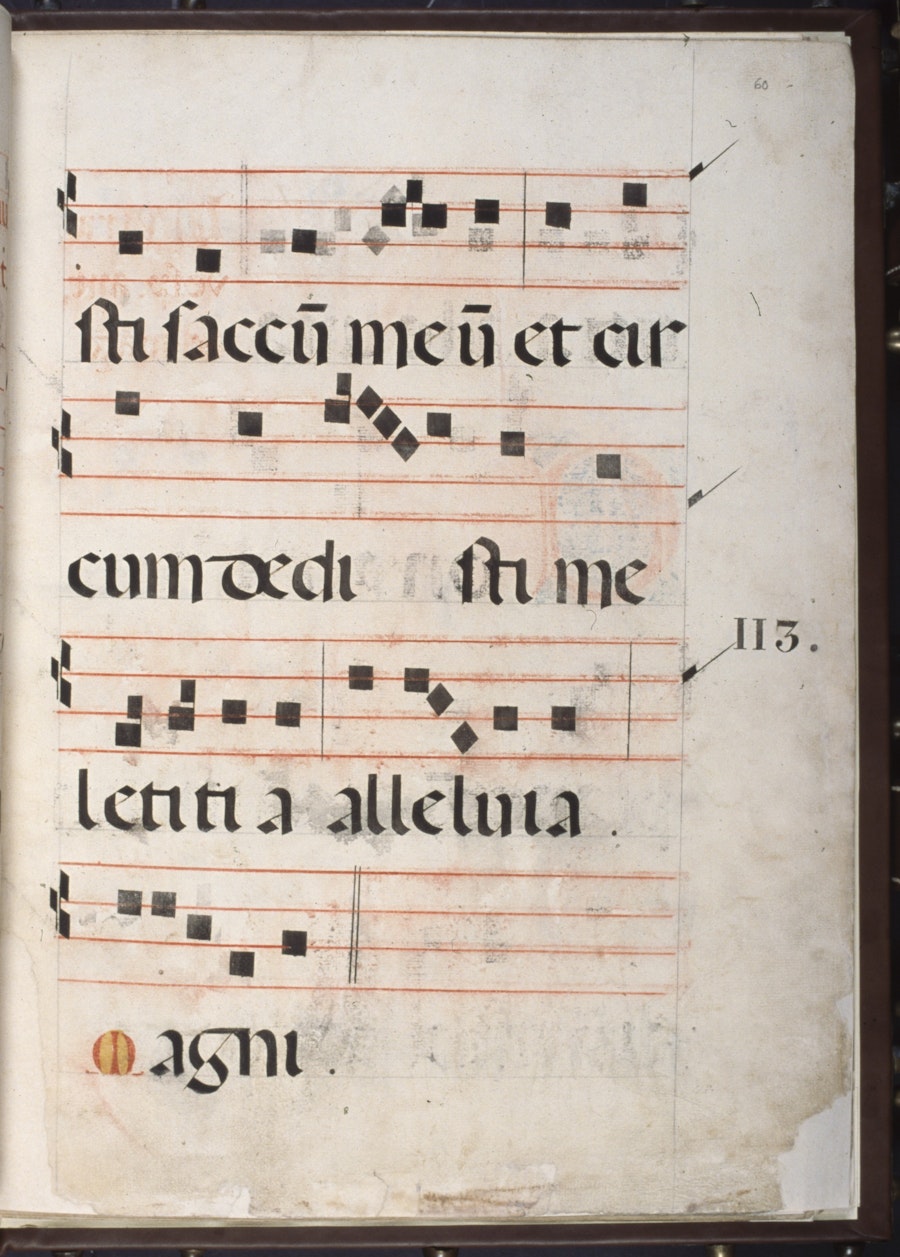 60
sti saccū meū et cir
cumdedi sti me
113.
letiti a alleluia .
Magni .